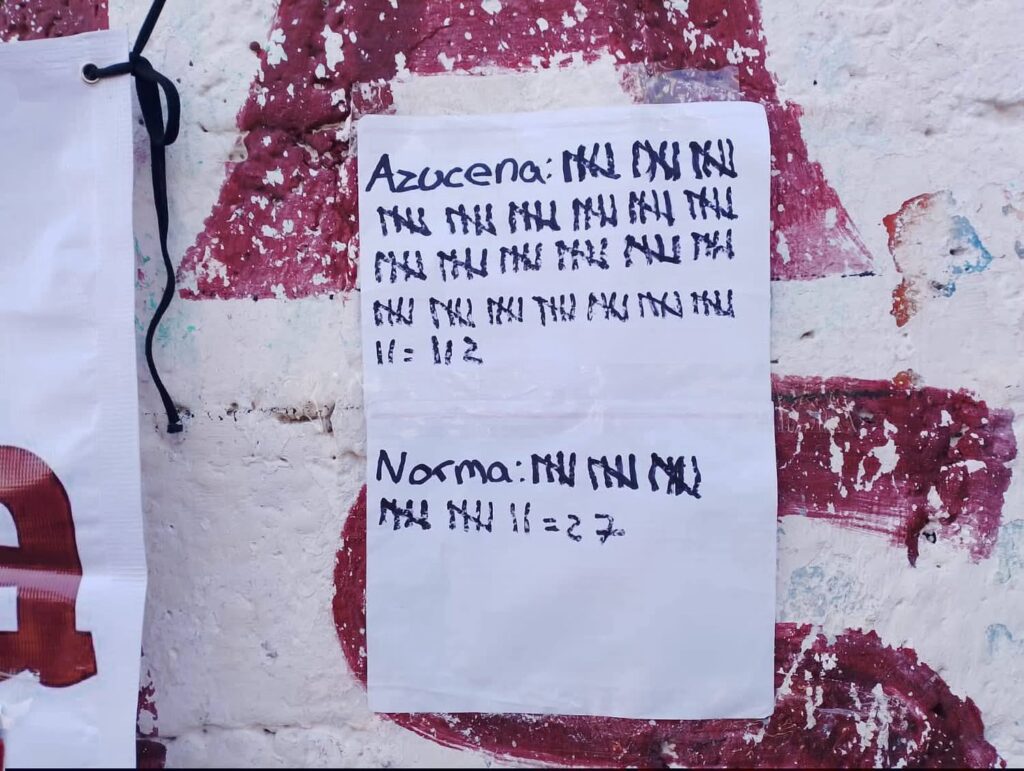 Azucena: 𝍸 𝍸 𝍸
𝍸 𝍸 𝍸 𝍸 𝍸 𝍸
𝍸 𝍸 𝍸 𝍸 𝍸 𝍸
𝍸 𝍸 𝍸 𝍸 𝍸 𝍸 𝍸
II = 112
Norma: 𝍸 𝍸 𝍸
𝍸 𝍸 II = 27